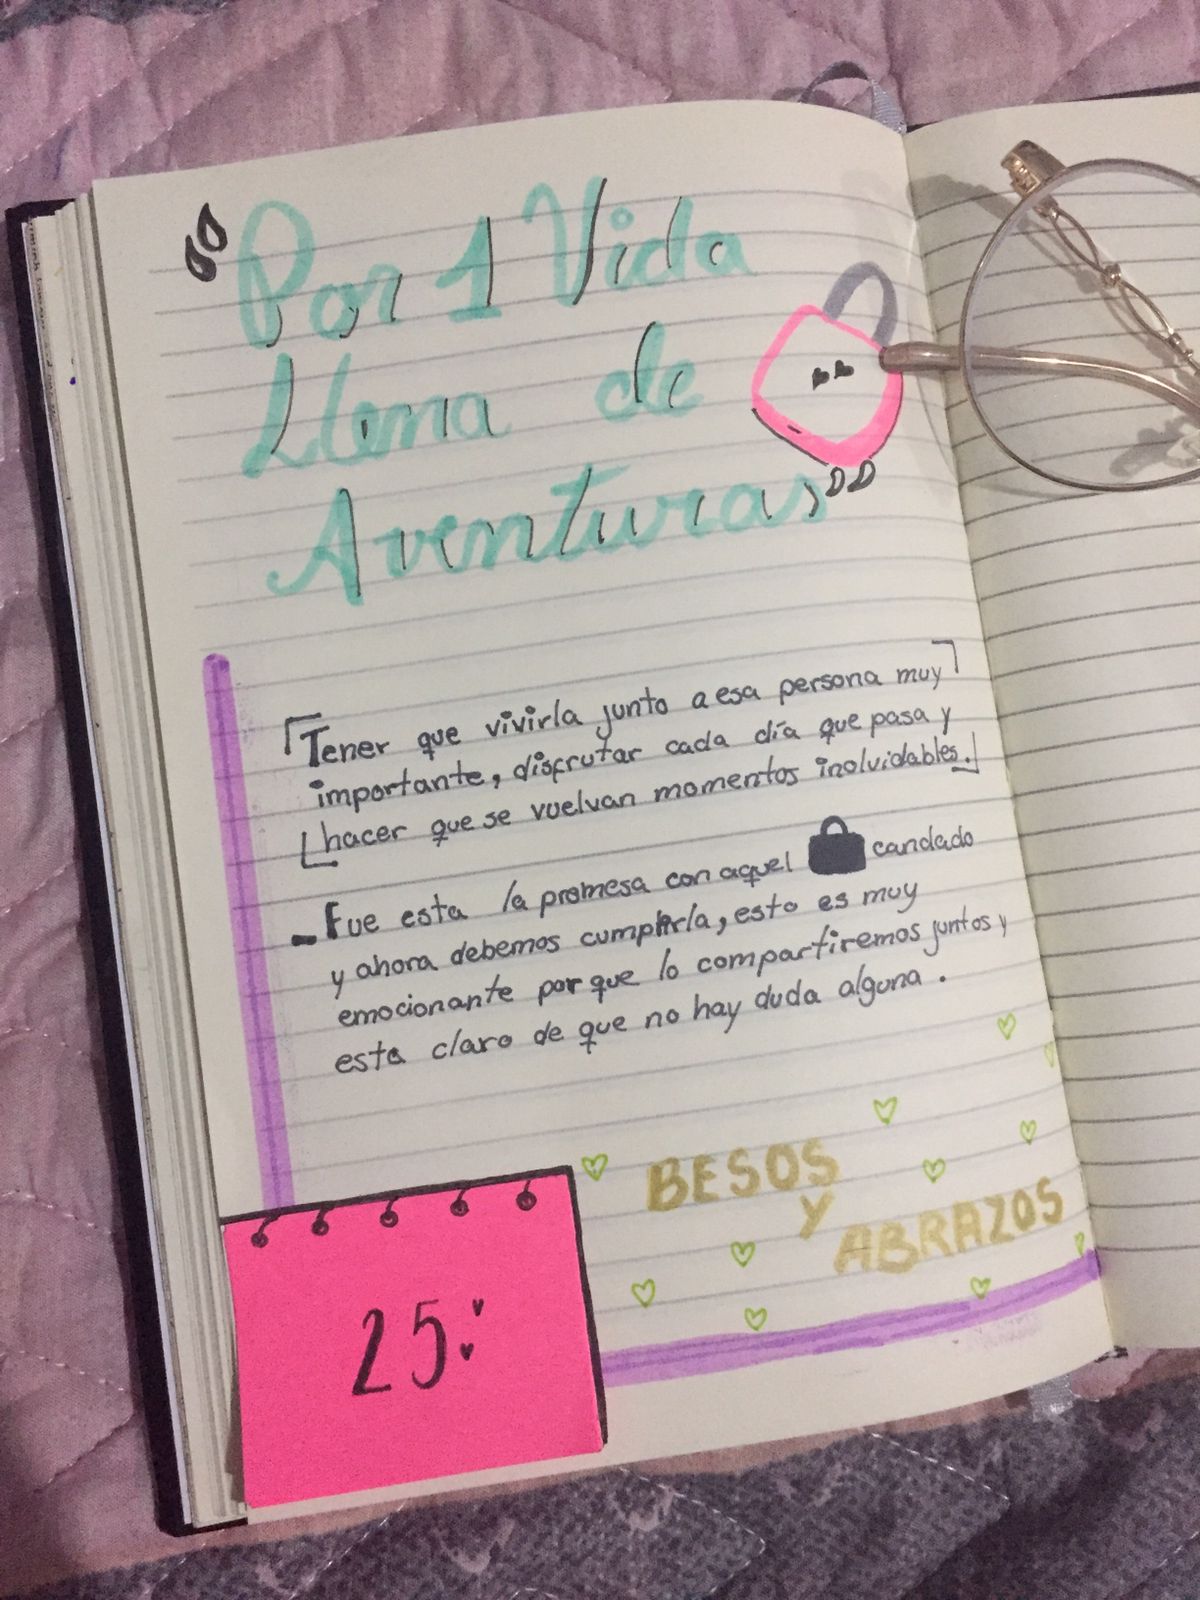 "Por 1 Vida
Llena de
Aventuras"
Tener que vivirla junto a esa persona muy
importante, disfrutar cada día que pasa y
hacer que se vuelvan momentos inolvidables.
- Fue esta la promesa con aquel candado
y ahora debemos cumplirla, esto es muy
emocionante por que lo compartiremos juntos y
esta claro de que no hay duda alguna.
BESOS
Y
ABRAZOS
25: